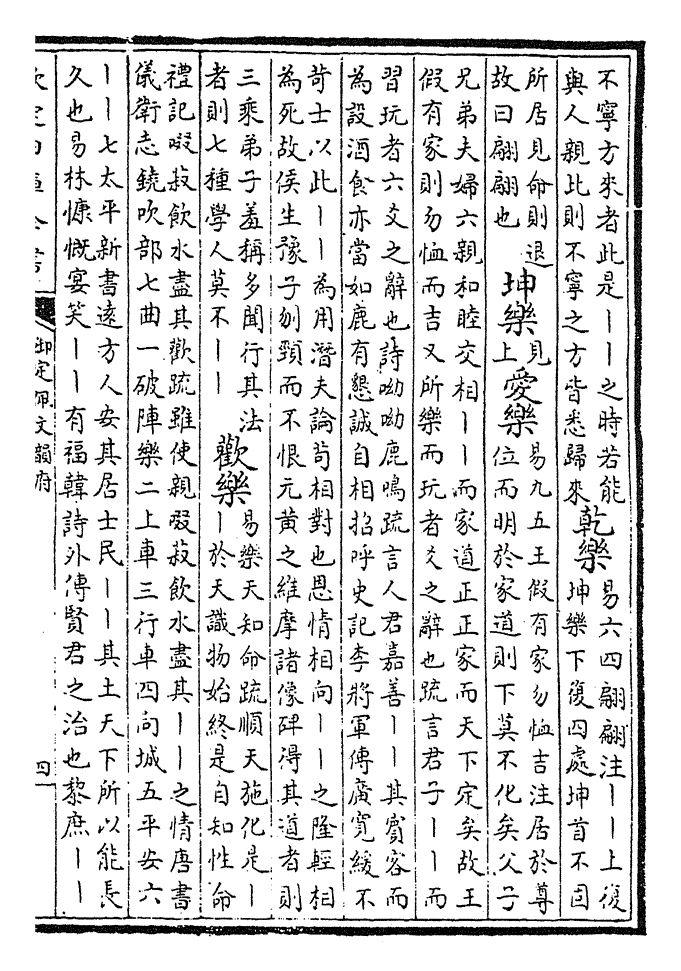 不寧方來者此是丨丨之時若能
與人親比則不寧之方皆悉歸來
乾樂
易六四翩翩注丨丨上復
坤樂下復四處坤首不固
所居見命則退
故曰翩翩也
坤樂
見
上
愛樂
易九五王假有家勿恤吉注居於尊
位而明於家道則下莫不化矣父子
兄弟夫婦六親和睦交相丨丨而家道正正家而天下定矣故王
假有家則勿恤而吉又所樂而玩者爻之辭也疏言君子丨丨而
習玩者六爻之辭也詩呦呦鹿鳴疏言人君嘉善丨丨其賓客而
為設酒食亦當如鹿有懇誠自相招呼史記李將軍傳廣寬緩不
苛士以此丨丨為用潛夫論苟相對也恩情相向丨丨之隆輕相
為死故侯生豫子刎頸而不恨元黃之維摩諸像碑得其道者則
三乘弟子羞稱多聞行其法
者則七種學人莫不丨丨
歡樂
易樂天知命疏順天施化是丨
丨於天識物始終是自知性命
禮記啜菽飲水盡其歡疏雖使親啜菽飲水盡其丨丨之情唐書
儀衛志鐃吹部七曲一破陣樂二上車三行車四向城五平安六
丨丨七太平新書遠方人安其居士民丨丨其土天下所以能長
久也易林慷慨宴笑丨丨有福韓詩外傳賢君之治也黎庶丨丨
欽定四庫全書
御定佩文韻府
四